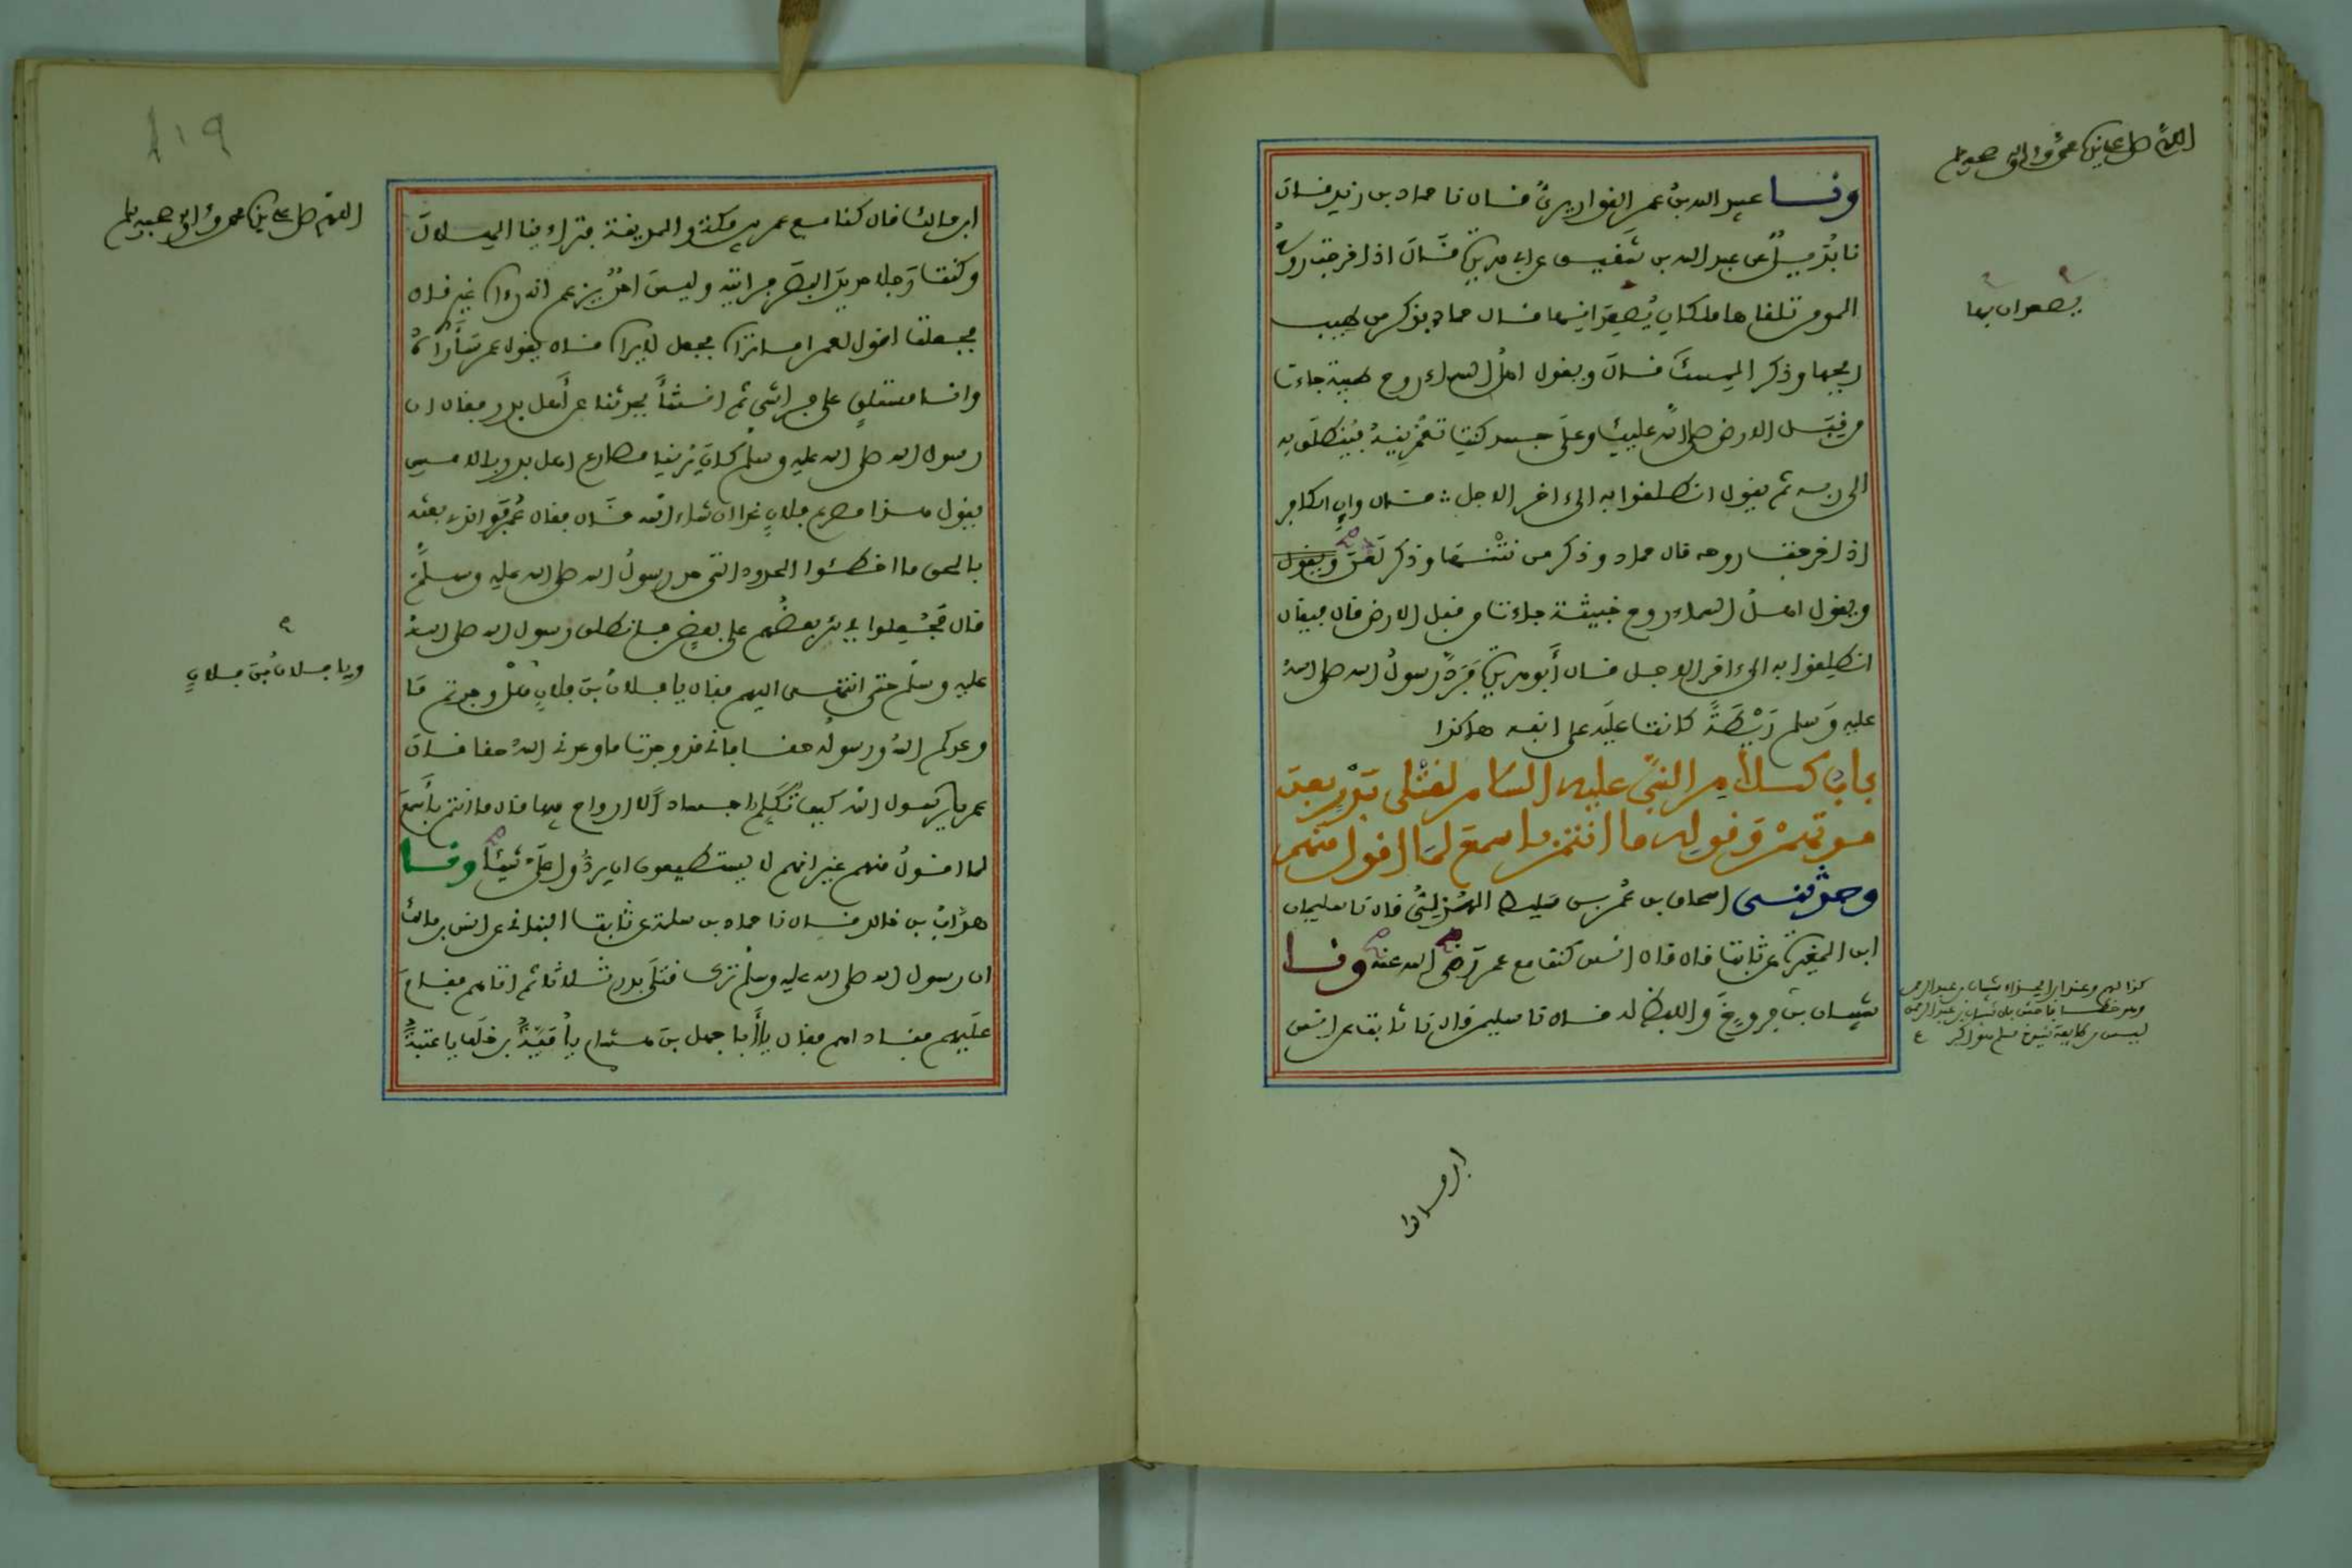 اللهم صل على نبينا محمد وءاله وصحبه وسلم
ونا عبيد الله بن عمر القواريري قال نا حماد بن زيد قال
نا بديل عن عبد الله بن شقيق عن ابي هريرة قال اذا خرجت روح
المومن تلقاها ملكان يصعدانها قال حماد فذكر من طيب
ريحها وذكر المسك قال ويقول اهل السماء روح طيبة جاءت
من قبل الارض صلى الله عليك وعلى جسد كنت تعمرينه فينطلق به
الى ربه ثم يقول انطلقوا به الى ءاخر الاجل قال وان الكافر
اذا خرجت روحه قال حماد وذكر من نتنها وذكر لعن ويقول
ويقول اهل السماء روح خبيثة جاءت من قبل الارض قال فيقال
انطلقوا به الى ءاخر الاجل قال أبو هريرة فرد رسول الله صلى الله
عليه وسلم ريطة كانت عليه على انفه هاكذا
باب كلام النبي عليه السلام لقتلى بدر بعد
موتهم وقوله ما انتم باسمع لما اقول منهم
وحدثني اسحاق بن عمر بن سليط الهذلي قال نا سليمان
ابن المغيرة عن ثابت قال قال انس كنت مع عمر رضي الله عنه ونا
شيبان بن فروخ واللفظ له قال نا سليمن قال نا ثابت عن انس
يصعدان بها
ابن مالك
اللهم صل على نبينا محمد وءاله وصحبه وسلم
ابن مالك قال كنا مع عمر بين مكة والمدينة فتراءينا الهلال
وكنت رجلا حديد البصر فرايته وليس احد يزعم انه رءاه غيري قال
فجعلت اقول لعمر اما تراه فجعل لا يراه قال يقول عمر سأراه
وانا مستلق على فراشي ثم انشأ يحدثنا عن أهل بدر فقال ان
رسول الله صلى الله عليه وسلم كان يرينا مصارع اهل بدر بالامس
يقول هذا مصرع فلان غدا ان شاء الله قال فقال عمر فو الذي بعثه
بالحق ما اخطئوا الحدود التي حد رسول الله صلى الله عليه وسلم
قال فجعلوا في بئر بعضهم على بعض فانطلق رسول الله صلى الله
عليه وسلم حتى انتهى اليهم فقال يا فلان بن فلان هل وجدتم ما
وعدكم الله ورسوله حقا فاني قد وجدت ما وعدني الله حقا قال
عمر يا رسول الله كيف تكلم اجسادا لا ارواح فيها قال ما انتم بأسمع
لما اقول منهم غير انهم لا يستطيعون ان يردوا علي شيئا ونا
هداب بن خالد قال نا حماد بن سلمة عن ثابت البناني عن انس بن مالك
ان رسول الله صلى الله عليه وسلم ترك قتلى بدر ثلاثا ثم اتاهم فقام
عليهم فناداهم فقال يا أبا جهل بن هشام يا أمية بن خلف يا عتبة
ويا فلان بن فلان